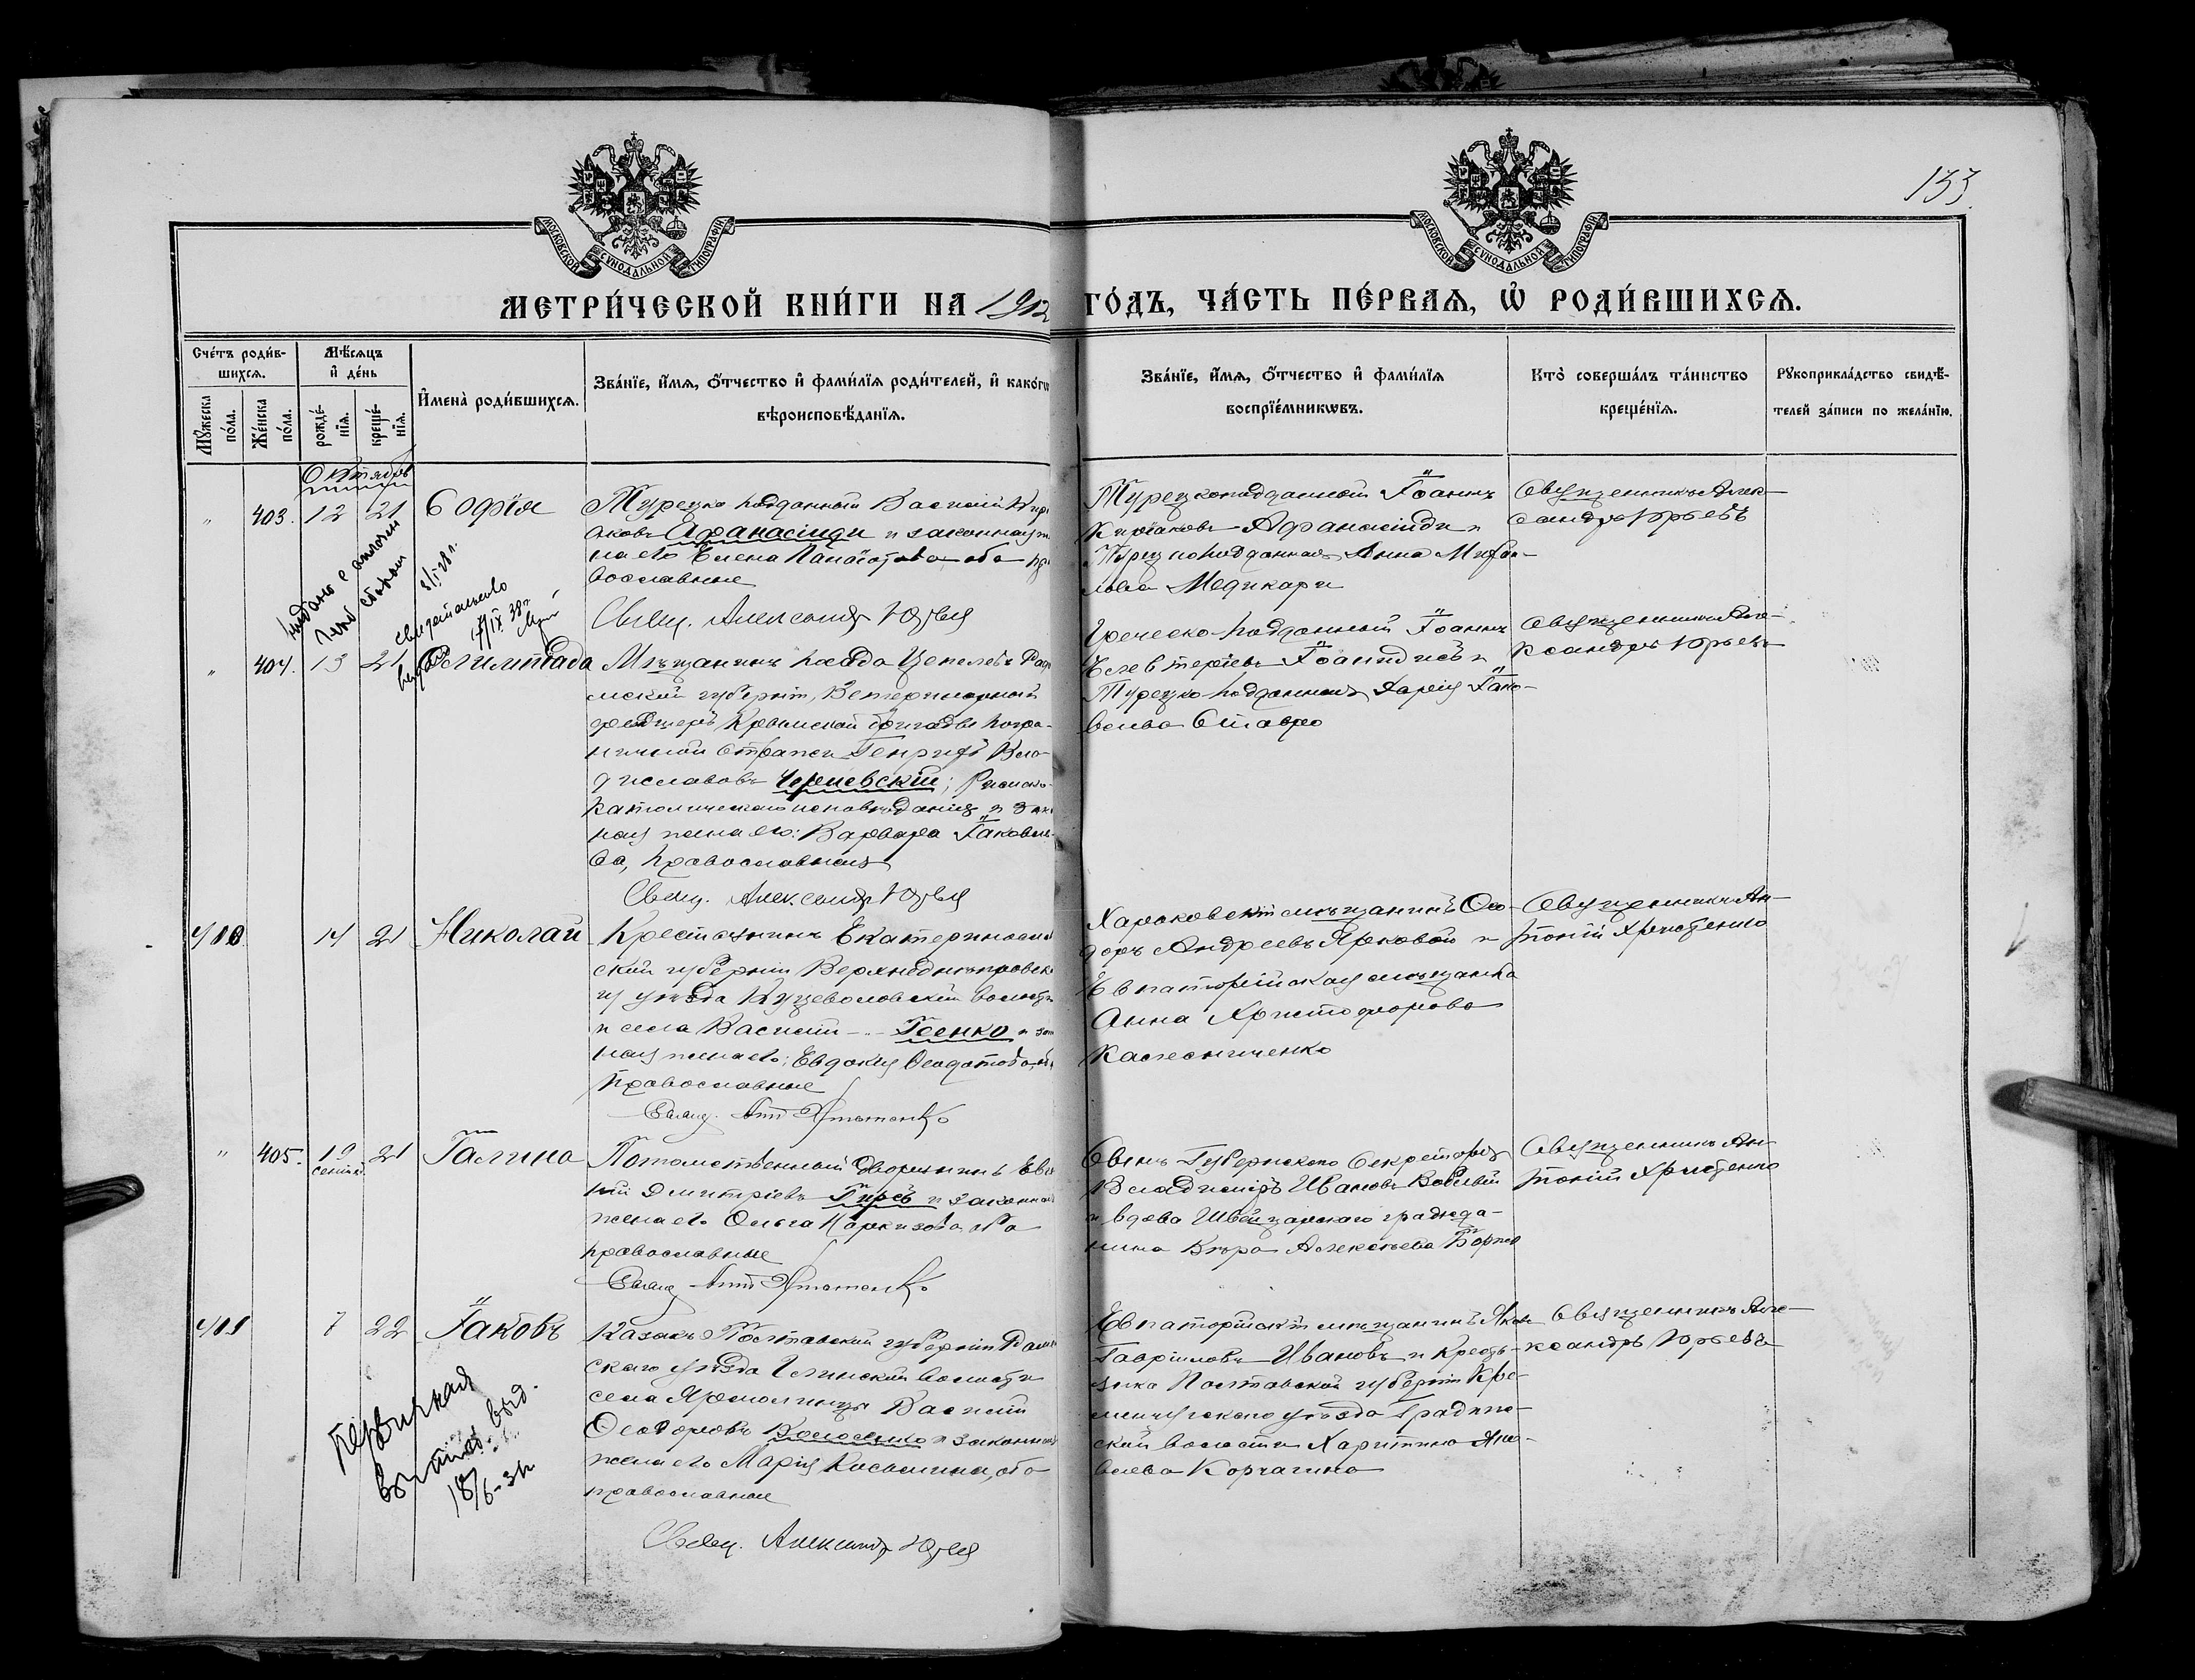 133
МОСКОВСКОЙ СѴНОДАЛЬНОЙ ТИПОГРАФІИ
МОСКОВСКОЙ СѴНОДАЛЬНОЙ ТИПОГРАФІИ
МЕТРИ́ЧЕСКОЙ КНИ́ГИ НА 1912
ГО́ДЪ, ЧА́СТЬ ПЕ́РВАЯ, Ѡ҆ РОДИ́ВШИХСЯ.
Сче́тъ роди́в-
шихсѧ.
Мѣ́сѧцъ
и҆ де́нь
Мꙋ́жеска по́ла.
Же́нска по́ла.
рожде́-
нїѧ.
креще́-
нїѧ.
И҆мена̀ роди́вшихсѧ.
Зва́нїе, и҆́мѧ, ѻ҆́тчество и҆ фами́лїѧ роди́телей, и҆ како́гѡ
вѣроисповѣ́данїѧ.
Зва́нїе, и҆́мѧ, ѻ҆́тчество и҆ фами́лїѧ
воспрїе́мникѡвъ.
Кто̀ соверша́лъ та́инство
креще́нїѧ.
Рꙋкоприкла́дство свидѣ́-
телей за́писи по жела́нїю.
Октябрь
" 403. 12 21 Софія
Турецко подданный Василій Кирі
аковъ Афанасиди и законная же
на его Елена Панаіотова оба пра
вославные
Свящ. Александръ Юрьевъ
Турецкоподданный Іоаннъ
Киріаковъ Афанасіиди и
Турецкоподданная Анна Михаи-
лова Медикари
Священникъ Алек-
сандръ Юрьевъ
свидетельство
" 404. 13 21 Олимпіада
Мѣщанинъ посада Цепелевъ Радо
мской губерніи, Ветеринарный
фельдшеръ Крымской бригады погра-
ничной стражи Генрихъ Вла-
диславовъ Черневскій; Римско-
католическаго исповѣданія и зако
ная жена его: Варвара Іаковле-
ва, православная
Свящ. Александръ Юрьевъ
Греческо-подданный Іоаннъ
Елевтеріевъ Іоаннидисъ и
Турецко-подданная Марія Іако-
влева Ставро
Священникъ Але-
ксандръ Юрьевъ
14 21 Николай
Крестьянинъ Екатеринослав
ской губерніи Верхнеднѣпровска
го уѣзда Куцеволовской волости
и села Василій Геенко и зак
ная жена его: Евдокія Феодотова, об
православные
Харьковскій мѣщанинъ Ѳео-
доръ Андреевъ Ярковой и
Евпаторійская мѣщанка
Анна Христофорова
Колесниченко
Священникъ Ан-
тоній Христенко
" 405. 19 21 Галина
сентяб.
Потомственный дворянинъ Евге
ній Дмитріевъ Гиревъ и законная
жена его Ольга Маркизова, оба
православные
Сынъ Губернскаго Секретаря
Владиміръ Ивановъ
и вдова Швейцарскаго гражда-
нина Вѣра Алексѣева
Священникъ Ан-
тоній Христенко
7 22 Іаковъ
Казакъ Полтавской губерніи Ромен
скаго уѣзда Глинской волости
села Ярмолинцы Василій
Ѳеодоровъ Волосенко и законная
жена его Марія Косьмина, оба
православные
Свящ. Александръ Юрьевъ
Евпаторійскій мѣщанинъ Яковъ
Гавріиловъ Ивановъ и Кресть-
янка Полтавской губерніи Кре-
менчугскаго уѣзда Градиж-
ской волости Харитина Яко-
влева Корчагина
Священникъ Але-
ксандръ Юрьевъ
Первичная
18/6-31